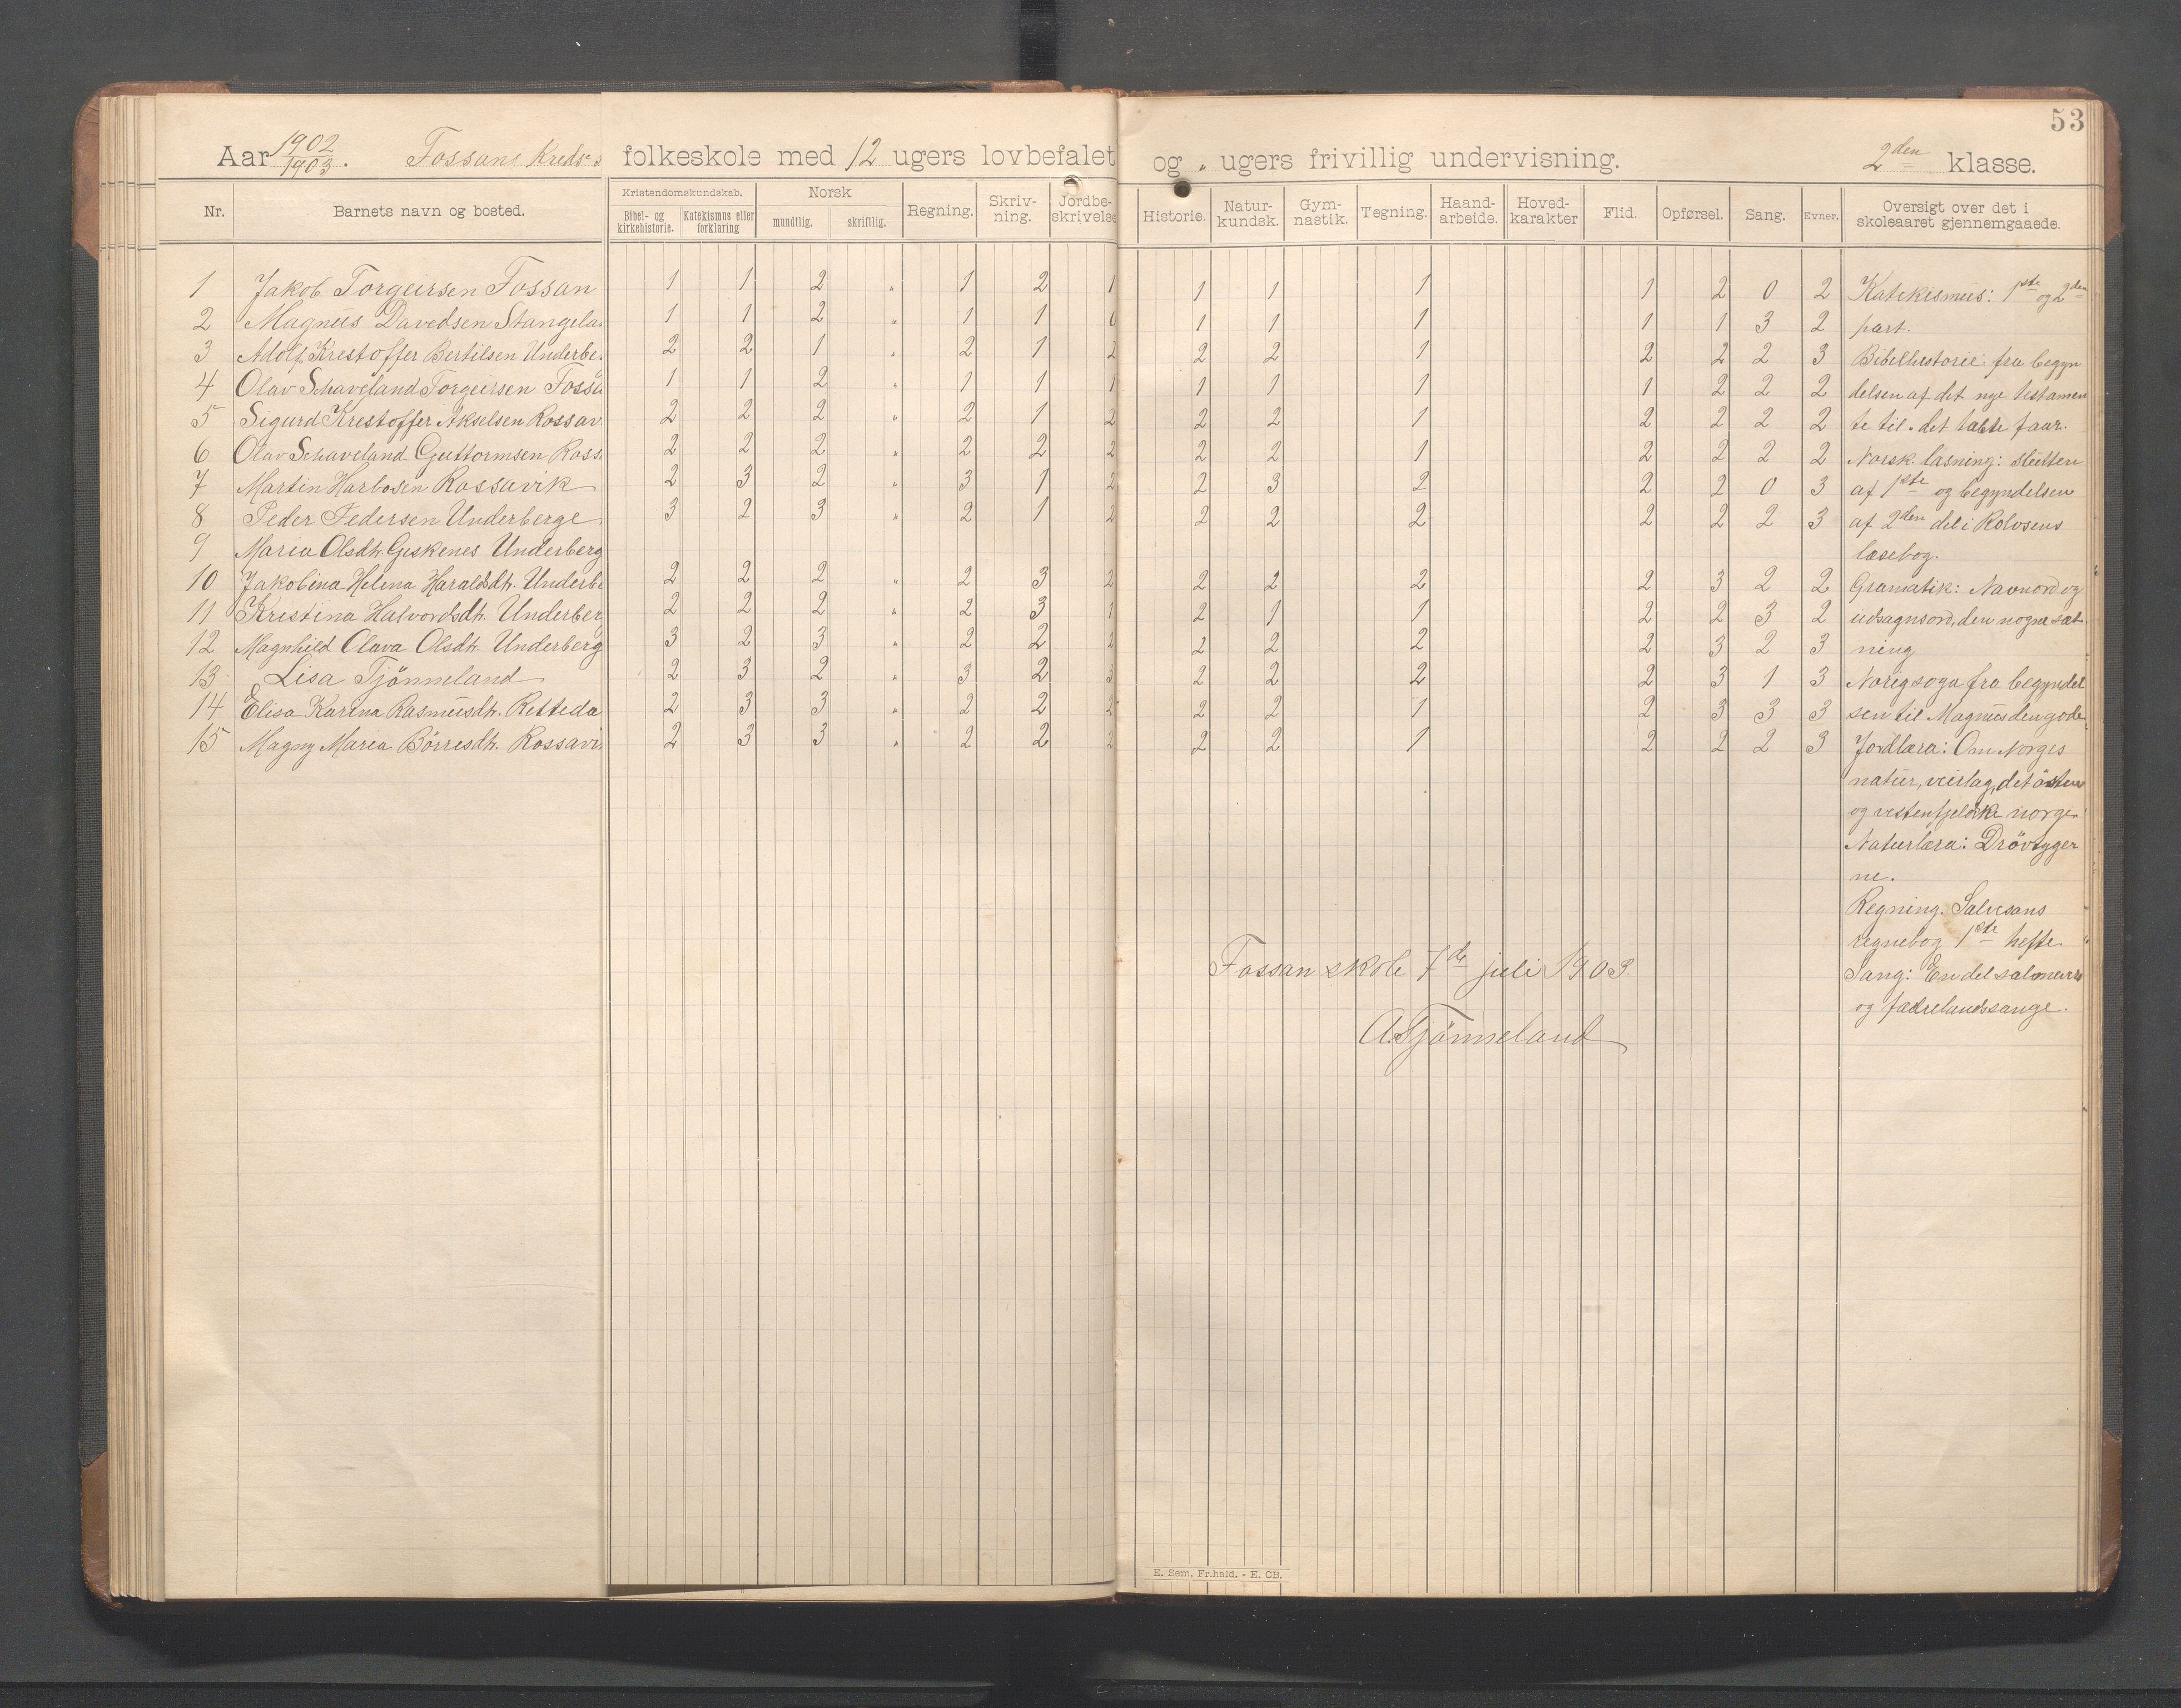 53
Aar 1902/1903. Fossans Kreds's folkeskole med 12 ugers lovbefalet og „ ugers frivillig undervisning. 2den klasse.
Nr. Barnets navn og bosted. Kristendomskundskab. Bibel- og kirkehistorie. Katekismus eller forklaring Norsk mundtlig. skriftlig. Regning. Skriv-ning. Jordbe-skrivelse Historie. Natur-kundsk. Gym-nastik. Tegning. Haand-arbeide. Hoved-karakter Flid. Opførsel. Sang. Evner. Oversigt over det i skoleaaret gjennemgaaede.
1 Jakob Torgeirsen Fossan 1 1 2 „ 1 2 1 1 1 1 1 2 0 2 Katekismus: 1ste og 2den
2 Magnus Davedsen Stangela 1 1 2 „ 1 1 1 1 1 1 1 3 2 part.
3 Adolf Krestoffer Bertilsen Underbe 2 2 1 „ 2 1 2 2 2 1 2 2 2 3 Bibelhistorie: fra begyn
4 Olav Schaveland Torgeirsen Fossa 1 1 2 „ 1 1 1 1 1 1 1 2 2 2 delsen af det nye testamen
5 Sigurd Krestoffer Akselsen Rossav 2 2 2 „ 2 1 2 2 2 1 2 2 2 2 te til det tabte faar.
6 Olav Schaveland Guttormsen Ross 2 2 2 „ 2 2 2 2 2 1 2 2 2 2 Norsk læsning: slutten
7 Martin Harbosen Rossavik 2 3 2 „ 3 1 2 2 3 2 2 2 0 3 af 1ste og begyndelsen
8 Peder Pedersen Underberge 3 2 3 „ 2 1 2 2 2 2 2 2 2 3 af 2den del i Rolvsens
9 Maria Olsdtr. Geskenes Underberg læsebog.
10 Jakobina Helena Haraldsdtr. Underbe 2 2 2 „ 2 3 2 2 2 2 2 3 2 2 Gramatik: Navnord og
11 Kristina Halvordsdtr. Underber 2 2 2 „ 2 3 1 2 1 1 2 2 3 2 udsagnsord, den nøgne sæt
12 Magnhild Olava Olsdtr. Underberg 3 2 3 „ 2 2 2 2 2 2 2 3 2 3 ning
13 Lisa Tjönneland 2 3 2 „ 3 2 3 2 2 2 2 3 1 3 Norigsoga fra begyndel
14 Elisa Karina Rasmusdtr. Retteda 2 3 3 „ 2 2 2 2 2 1 2 3 3 3 sen til Magnus den gode
15 Magny Maria Börresdtr. Rossavi 2 3 3 „ 2 2 2 2 2 1 2 2 2 3 Jordlæra: Om Norges
natur, veirlag, det østen
og vestenfjeldske norge.
Naturlæra: Drövtyger
ne.
Regning. Salvesans
regnebog 1ste hefte.
Sang: En del salmevers
og fædrelandssange.
Fossan skole 7de juli 1903.
A. Tjönneland
E. Sem, Fr.hald. - E. CB.